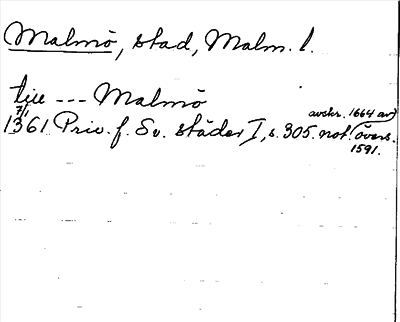 Malmö, stad, Malm. l.
till --- Malmö
7/1 avskr. 1664 av
1361 Priv. f. Sv. städer I, s. 305. not. (övers.
1591.